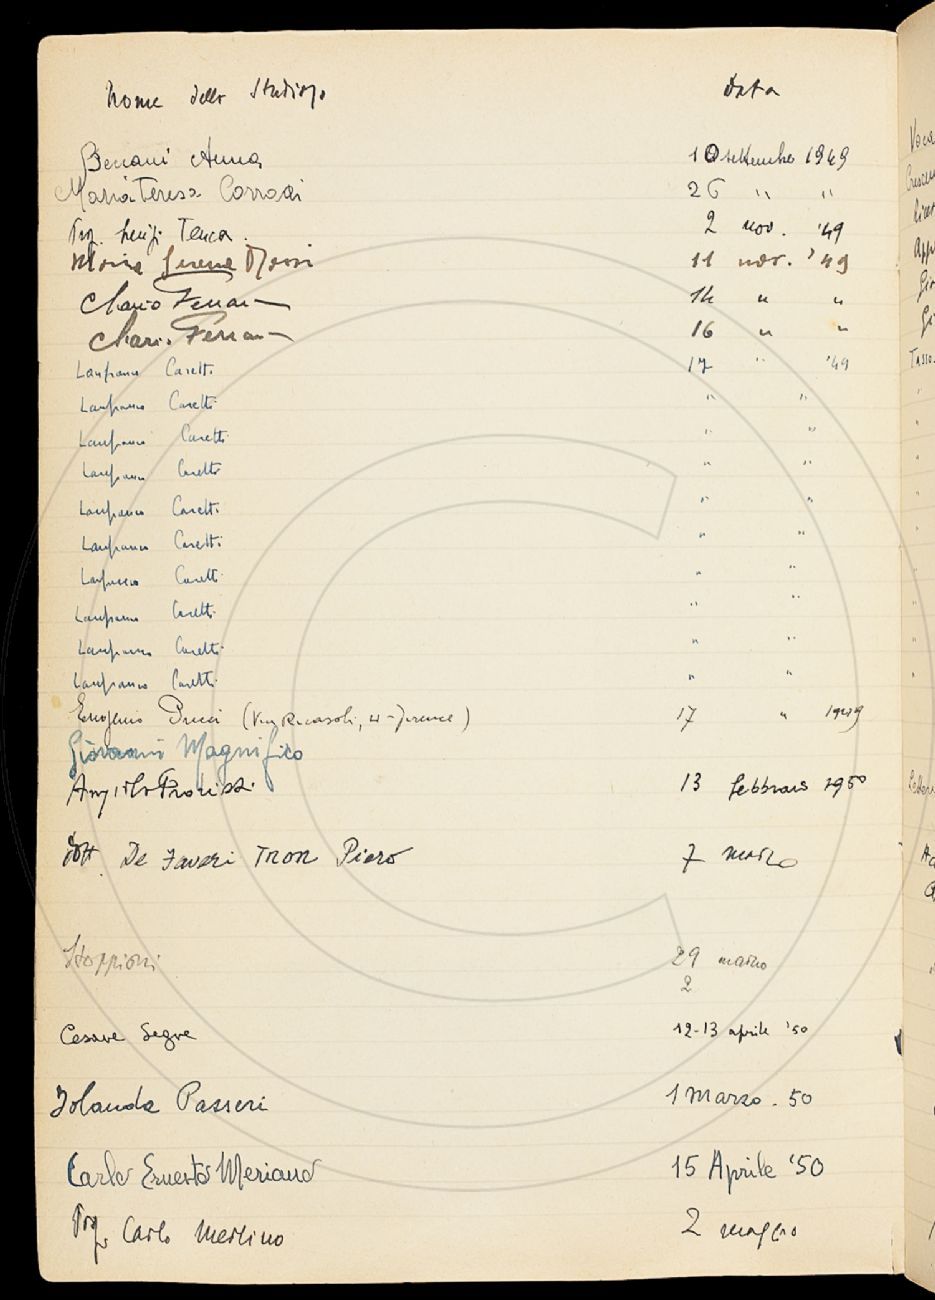 Nome dello Studioso Data
Anna 10 settembre 1949
Maria Teresa Corradi 26 " "
Prof. Luigi Tenca. 2 nov. '49
Maria 11 nov. '49
Mario Ferrari 14 " "
Mario Ferrari 16 " "
Lanfranco Caretti 17 " '49
Lanfranco Caretti " "
Lanfranco Caretti " "
Lanfranco Caretti " "
Lanfranco Caretti " "
Lanfranco Caretti " "
Lanfranco Caretti " "
Lanfranco Caretti " "
Lanfranco Caretti " "
Lanfranco Caretti " "
Eugenio (Via Ricasoli, 4 - Firenze) 17 " 1949
Giovanni Magnifico
13 febbraio 1950
Dott. De Faveri Tron Piero 7 marzo
Stoppioni 29 marzo
2
Cesare Segre 12-13 aprile '50
Iolanda Passeri 1 Marzo. 50
Carlo Ernesto Meriano 15 Aprile '50
Prof. Carlo Merlino 2 maggio